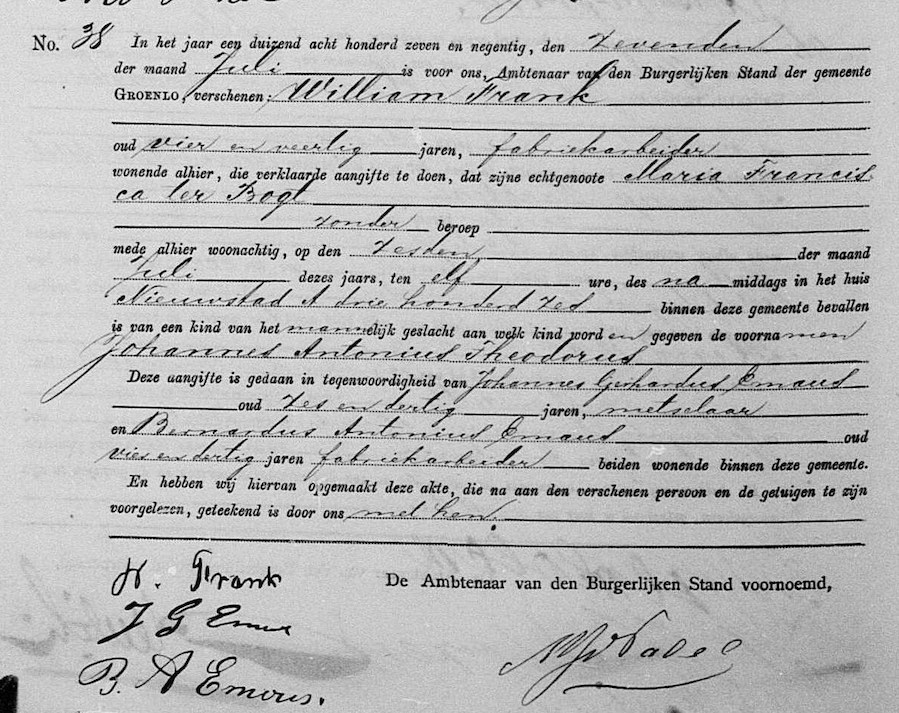 No. 38 In het jaar een duizend acht honderd zeven en negentig, den zevenden
der maand Juli is voor ons, Ambtenaar van den Burgerlijken Stand der gemeente
GROENLO, verschenen: William Frank
oud vier en veertig jaren, fabriekarbeider
wonende alhier, die verklaarde aangifte te doen, dat zijne echtgenoote Maria Francis
ca ter Bogt
zonder beroep
mede alhier woonachtig, op den zesden der maand
Juli dezes jaars, ten elf ure, des na middags in het huis
Nieuwstad A drie honderd zes binnen deze gemeente bevallen
is van een kind van het mannelijk geslacht aan welk kind worden gegeven de voornamen
Johannes Antonius Theodorus
Deze aangifte is gedaan in tegenwoordigheid van Johannes Gerhardus Emaus
oud zes en dertig jaren, metselaar
en Bernardus Antonius Emaus oud
vier en dertig jaren fabriekarbeider beiden wonende binnen deze gemeente.
En hebben wij hiervan opgemaakt deze akte, die na aan den verschenen persoon en de getuigen te zijn
voorgelezen, geteekend is door ons met hen.
De Ambtenaar van den Burgerlijken Stand voornoemd,
W. Frank
J G Emaus
B. A Emous.